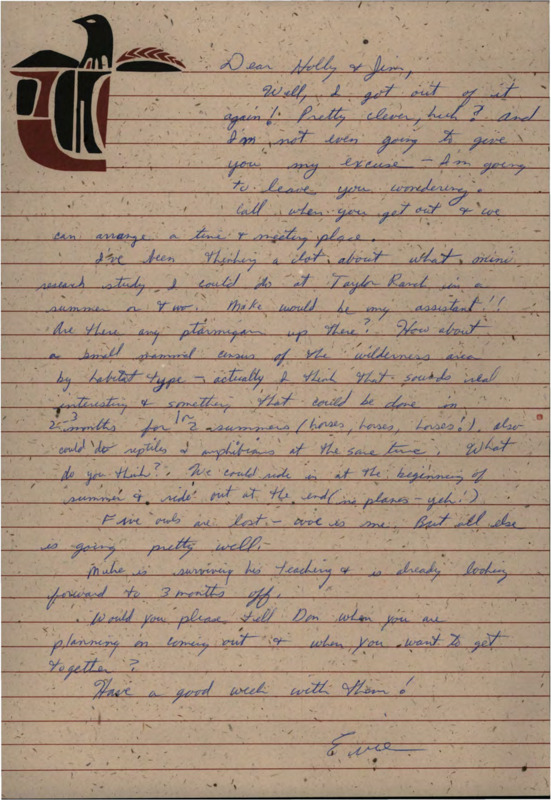 Dear Holly & Jim,
Well, I got out of it
again! Pretty clever, huh? And
I'm not even going to give
you my excuse - I'm going
to leave you wondering.
Call when you get out & we
can arrange a time & meeting place.
I've been thinking a lot about what mini
research study I could do at Taylor Ranch in a
summer or two. Mike would be my assistant!!
Are there any ptarmigan up there? How about
a small mammal census of the wilderness area
by habitat type - actually I think that sounds real
interesting & something that could be done in
2-3 months for 1 or 2 summers (horses, horses, horses!), also
could do reptiles & amphibians at the same time. What
do you think? We could ride in at the beginning of
summer & ride out at the end (no planes - yeh!)
Five owls are lost - woe is me. But all else
is going pretty well.
Mike is surviving his teaching & is already looking
forward to 3 months off.
Would you please tell Don when you are
planning on coming out & when you want to get
together?
Have a good week with them!